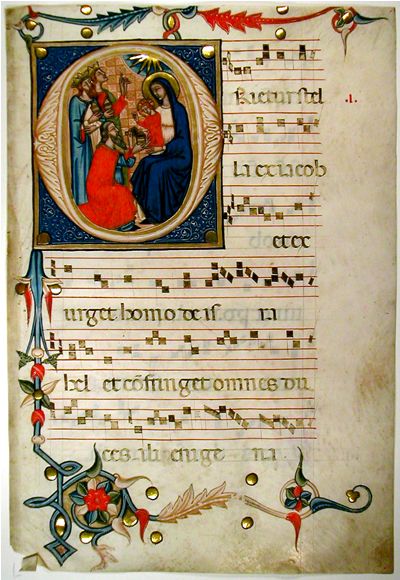 ORietur stel .i.
la ex iacob
et ex
urget homo de is ra
hel et cōfringet omnes du
ces alienige na